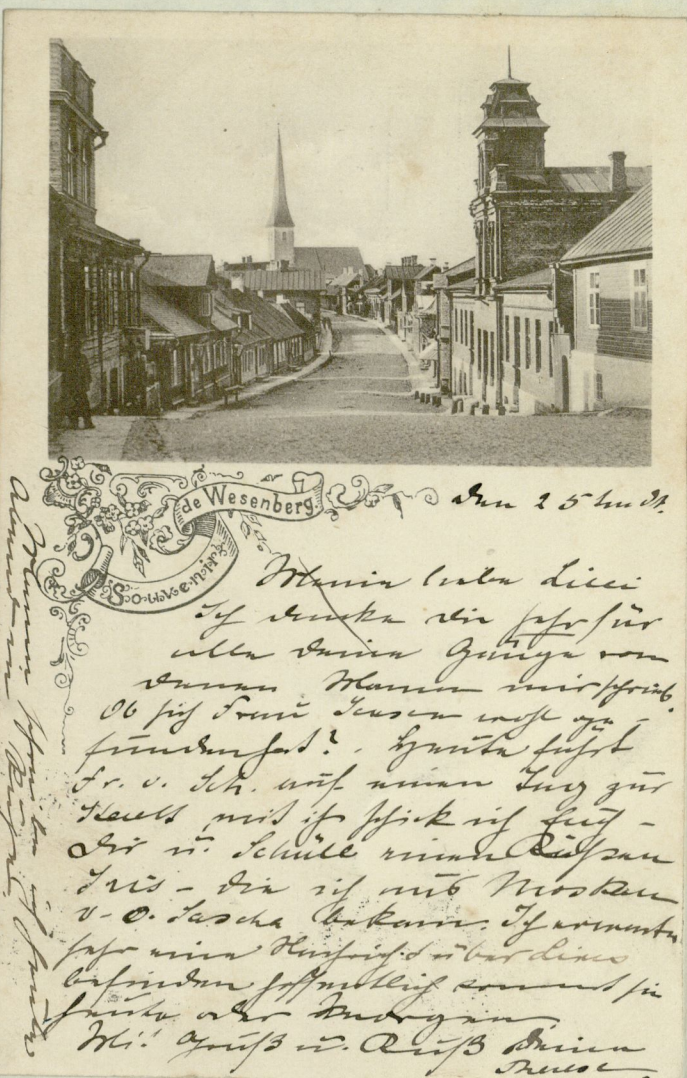 Souvenir
de Wesenberg.
Den 25
Meine liebe Lilli
Ich danke dir sehr für
alle deine Gänge von
denen Mama mir schrieb.
Ob sich Frau wohl ge-
funden hat? Heute fährt
Fr. v. Sch. auf einen Tag zur
Stadt, mit ihr schick ich Euch -
Dir u. Schüll einen
Iris - die ich aus Moskau
v. O. Sascha bekam. Ich erwarte
sehr eine Nachricht über
befinden hoffentlich kommt sie
heute oder Morgen.
Gruß u. Kuß Deine
Therese